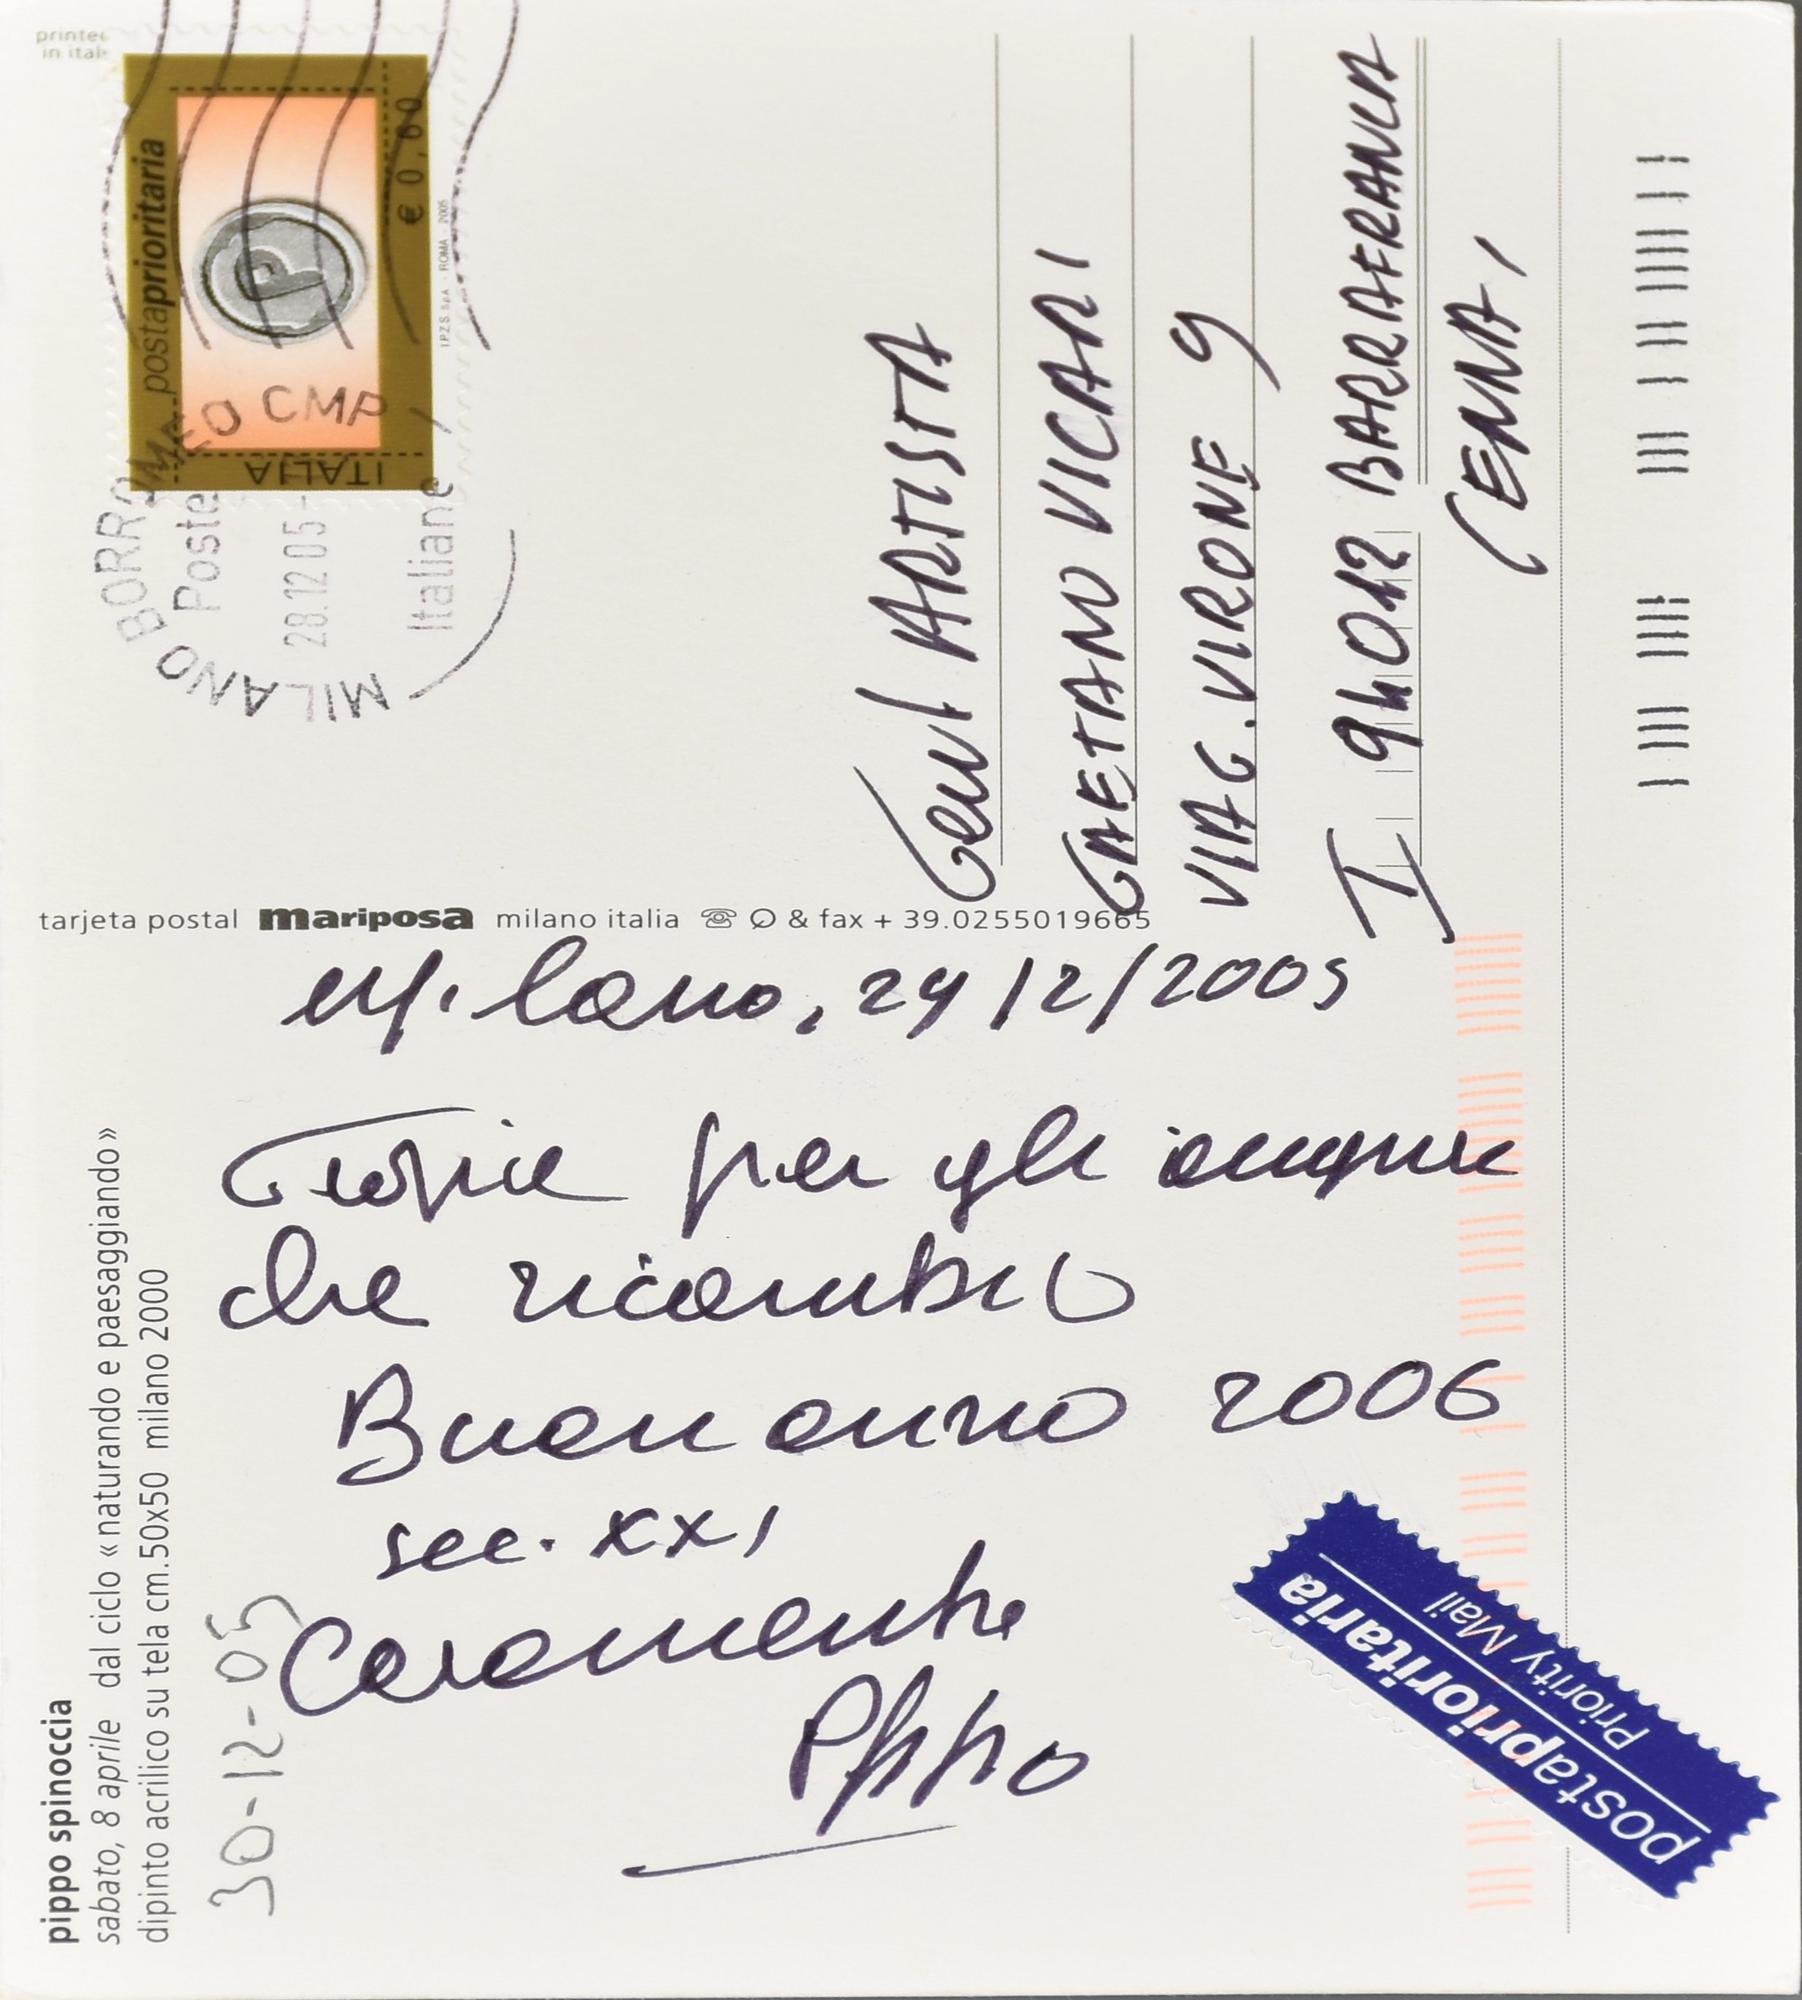 printed
in italy
postaprioritaria
€ 0,60
ITALIA
I.P.Z.S. S.p.A. - ROMA - 2005
MILANO BORROMEO CMP
Poste
28.12.05
Italiane
Gent ARTISTA
GAETANO VICARI
VIA G. VIRONE 9
I 94012 BARRAFRANCA
(ENNA)
tarjeta postal mariposa milano italia & fax + 39.0255019665
Milano, 24/12/2005
Grazie per gli auguri
che ricambio
Buon anno 2006
sec. XXI
Caramente
Pippo
30-12-05
pippo spinoccia
sabato, 8 aprile dal ciclo « naturando e paesaggiando»
dipinto acrilico su tela cm.50x50 milano 2000
postaprioritaria
Priority Mail